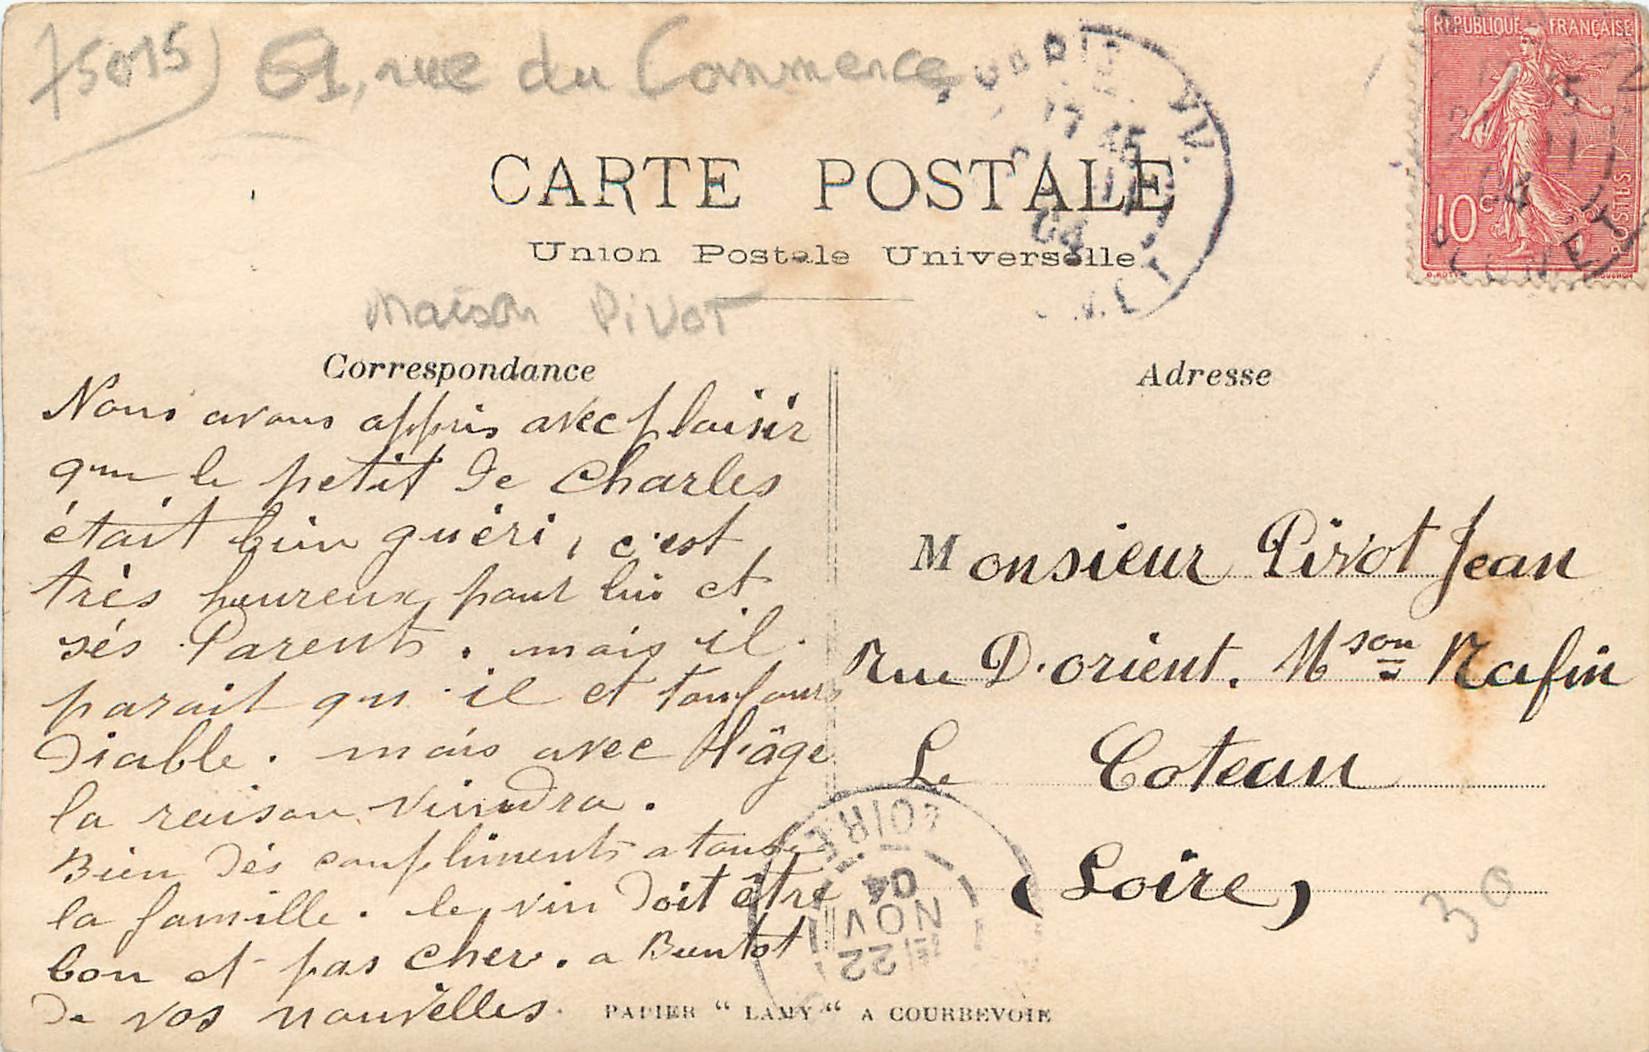 75015) 61, rue du Commerce
RÉPUBLIQUE FRANÇAISE
10c
POSTES
CARTE POSTALE
Union Postale Universelle
17 45
11
04
Maison Pivot
Correspondance
Nous avons appris avec plaisir
que le petit de Charles
était bien guéri, c'est
très heureux pour lui et
sés Parents. mais il
parait qu'il et toujours
Diable. mais avec l'âge
la raison viendra.
Bien dés compliments a toute
la famille. le vin doit être
bon et pas cher. a Bientot
de vos nouvelles.
Adresse
Monsieur Pivot Jean
Rue D'orient. Mson Rafin
Le Coteau
(Loire)
LOIRE
22
NOV
04
30
PAPIER "LAMY" A COURBEVOIE